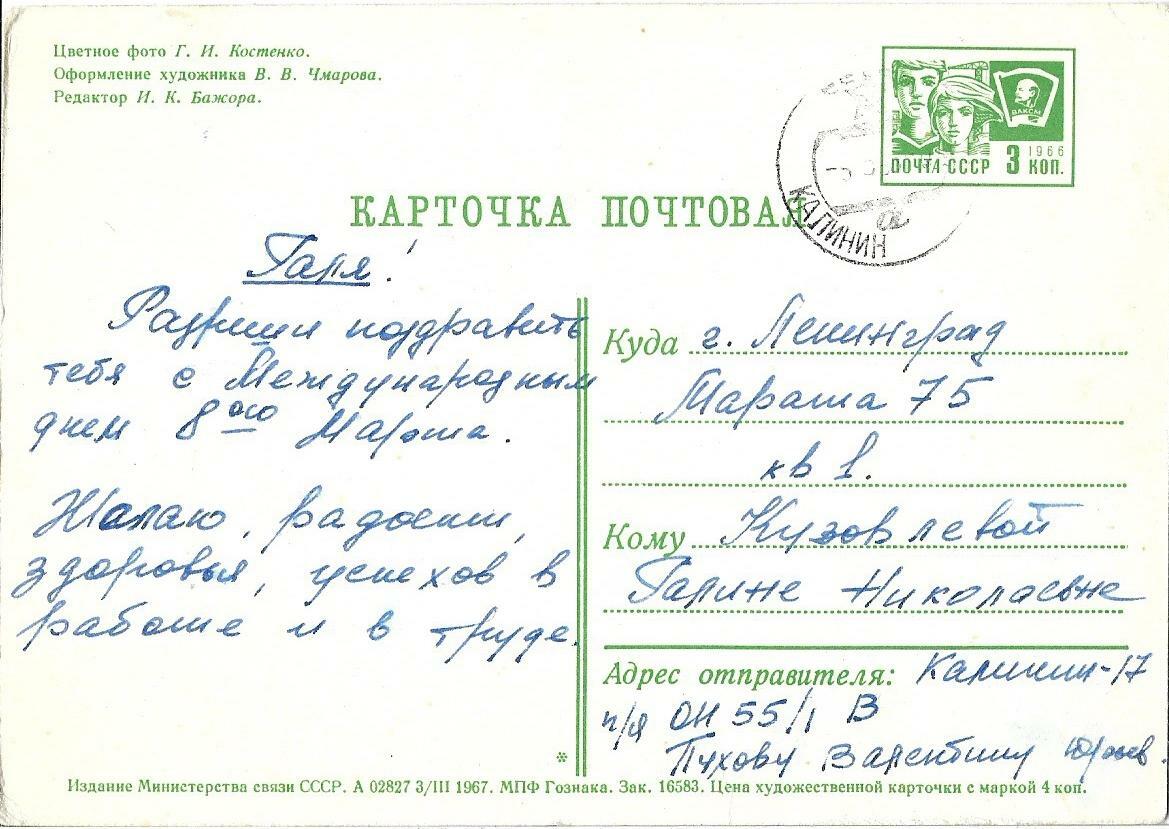 Цветное фото Г. И. Костенко.
Оформление художника В. В. Чмарова.
Редактор И. К. Бажора.
ВЛКСМ
1966
ПОЧТА СССР 3 КОП.
КАЛИНИН
а
КАРТОЧКА ПОЧТОВАЯ
Галя!
Разреши поздравить
тебя с Международным
днем 8ого Марта.
Желаю, радости,
здоровья, успехов в
работе и в труде.
Куда г. Ленинград
Марата 75
кв 1.
Кому Кузовлевой
Галине Николаевне
Адрес отправителя: Калинин-17
п/я ОН 55/1 В
Пухову Валентину
*
Издание Министерства связи СССР. А 02827 3/III 1967. МПФ Гознака. Зак. 16583. Цена художественной карточки с маркой 4 коп.